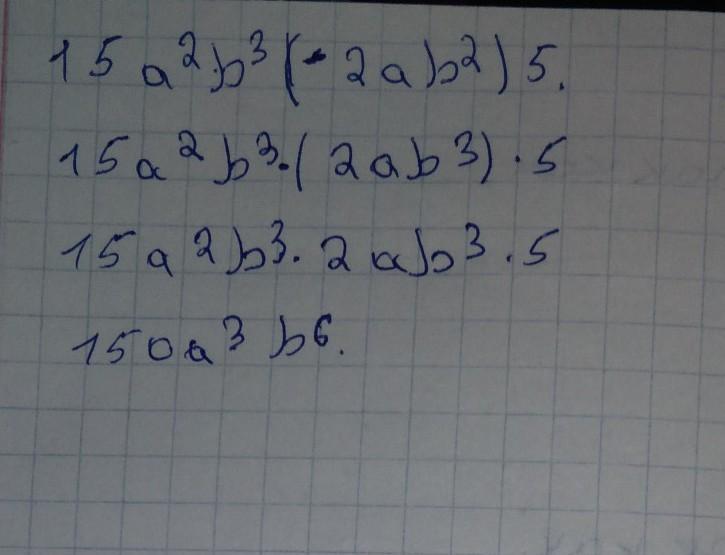 15a²b³(-2ab²)5.
15a²b³·(2ab³)·5
15a²b³·2ab³·5
150a³b⁶.